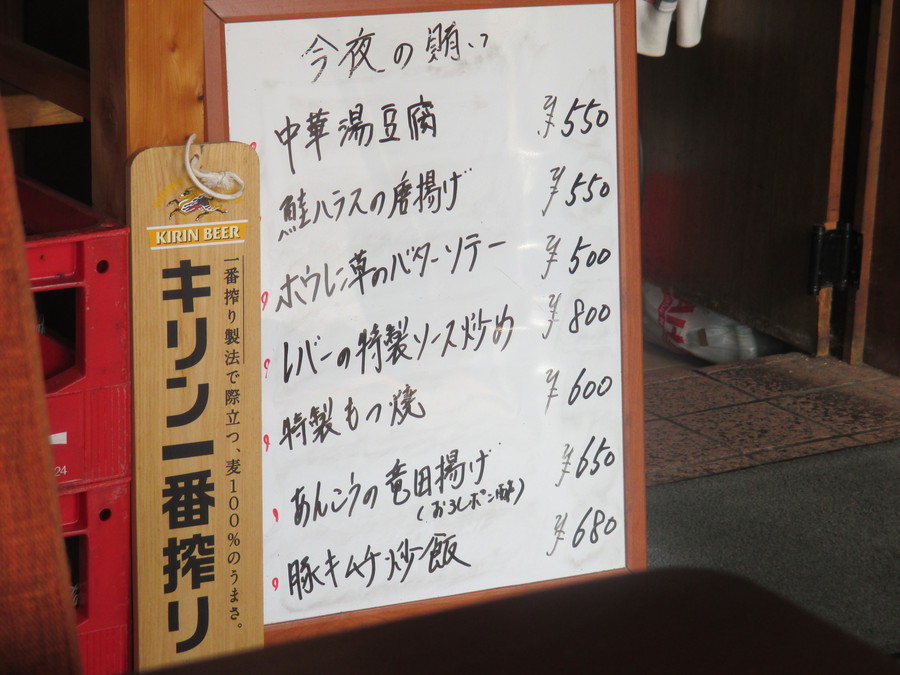 今夜の賄い
中華湯豆腐 ¥550
鮭ハラスの唐揚げ ¥550
ホウレン草のバターソテー ¥500
レバーの特製ソース炒め ¥800
特製もつ焼 ¥600
あんこうの竜田揚げ ¥650
(おろしポン酢)
豚キムチ炒飯 ¥680
KIRIN BEER
一番搾り製法で際立つ、麦100%のうまさ。
キリン一番搾り
24